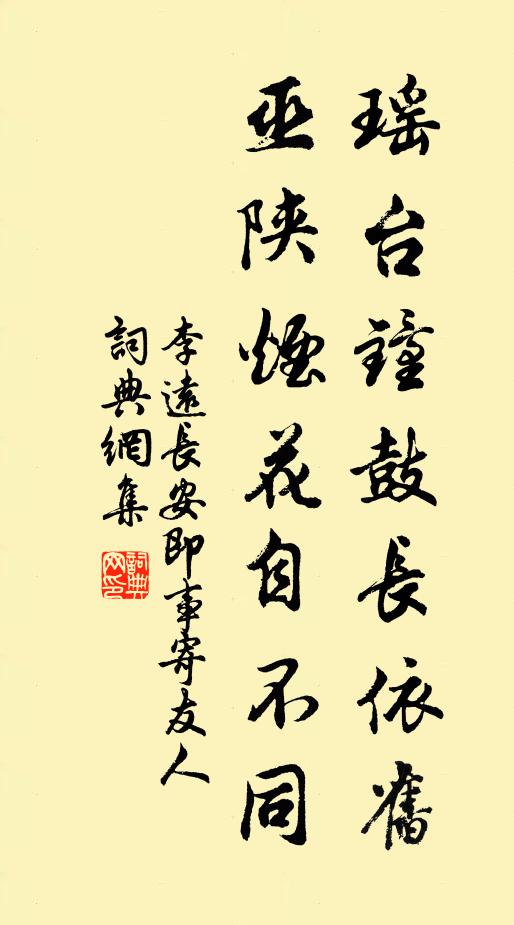 瑶台鐘鼓長依舊
巫陕煙花自不同
李遠長安即事寄友人
詞典網集
詞典网印